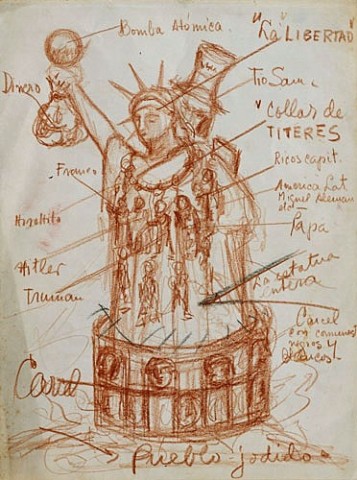 Bomba Atómica.
"La LIBERTAD"
Dinero
Tio Sam.
collar de
TITERES
Franco
Ricos capit.
America Lat.
Miguel Aleman
etc
Papa
Hiroito
Hitler
Truman
La estatua
entera
Carcel
con comunes
negros y
blancos
Carcel
Pueblo-jodido